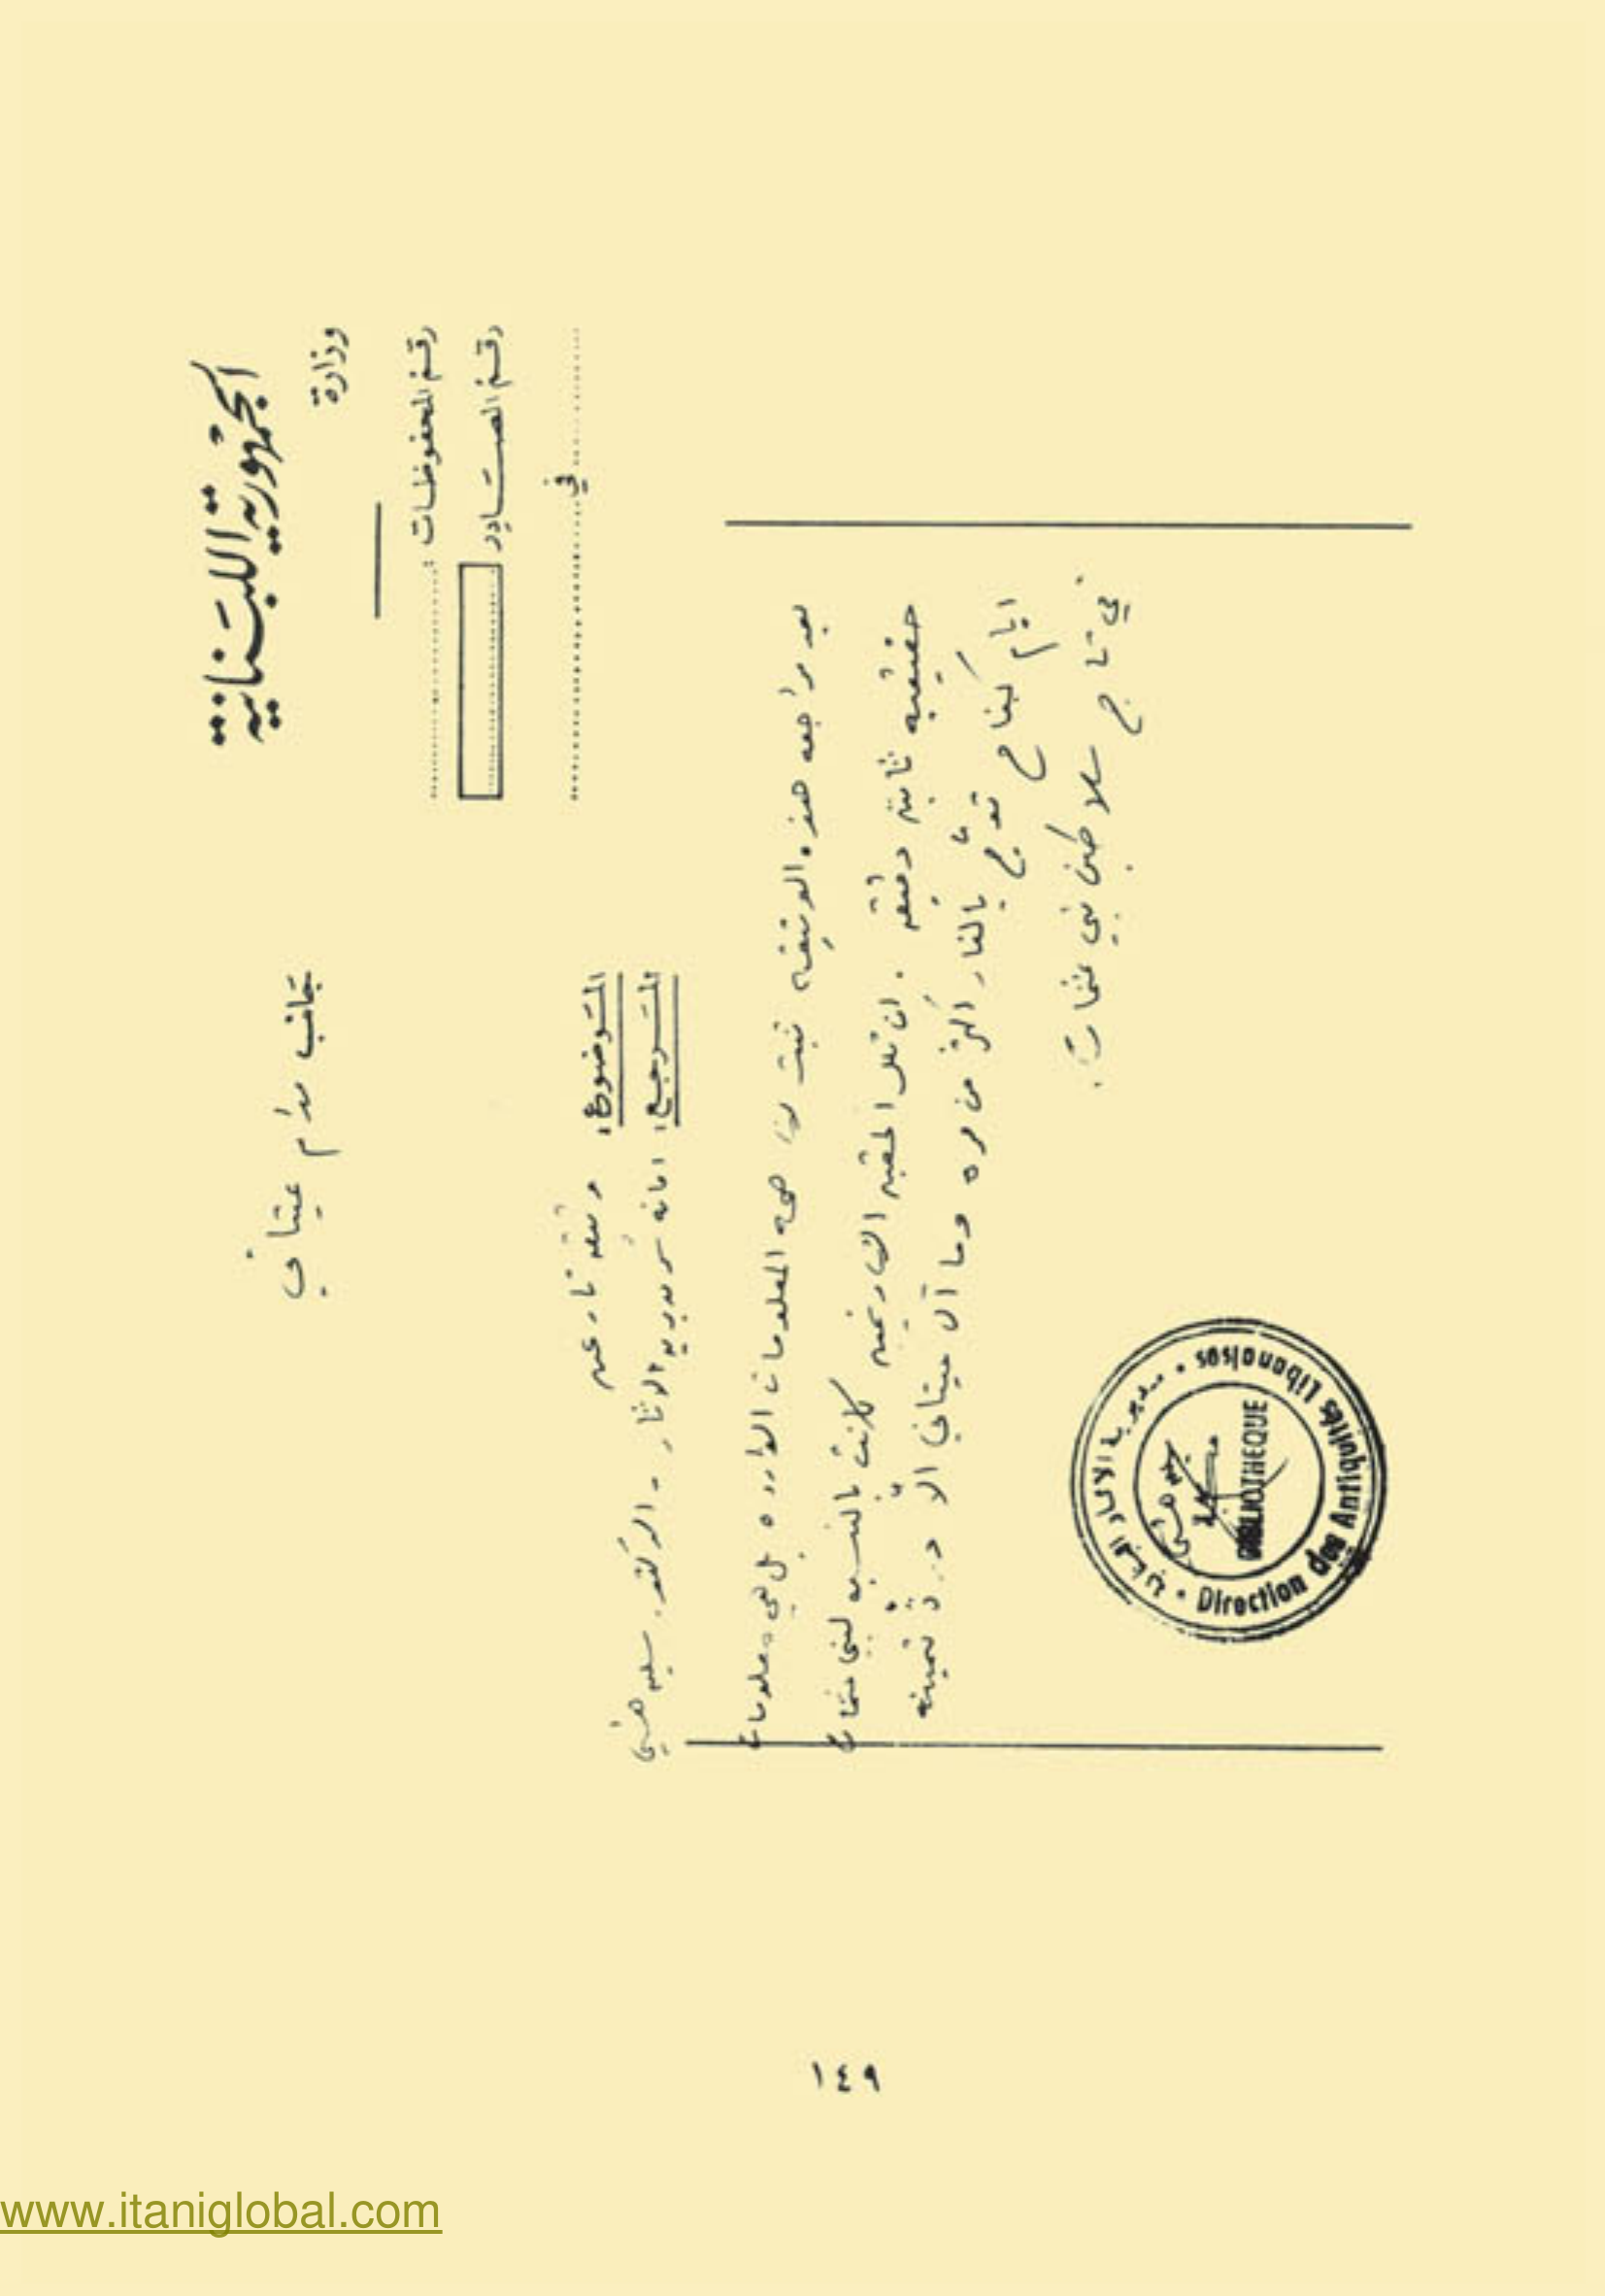 الجمهورية اللبنانية
وزارة
رقم المحفوظات :
رقم الصادر
في
جانب مدام عيتاني
الموضوع : وثيقة تاريخية
المرجع : امانة سر مديرية الاثار - الدكتور سليم هشي
بعد مراجعه هذه الوثيقه ثبت لنا صحه المعلومات الوارده بل هي معلومات
حقيقيه ثابته دقيقه . ان تلك الحقبه التاريخيه كانت بالنسبه لبني عثمان
ايام كفاح توّج بالغار اكثر من مره وما آل عيتاني الّا درّة ثمينه
في تاج سلاطين بني عثمان .
مديرية الاثار اللبنانية
Direction des Antiquités Libanaises
BIBLIOTHEQUE
سليم هشي
١٤٩
www.itaniglobal.com